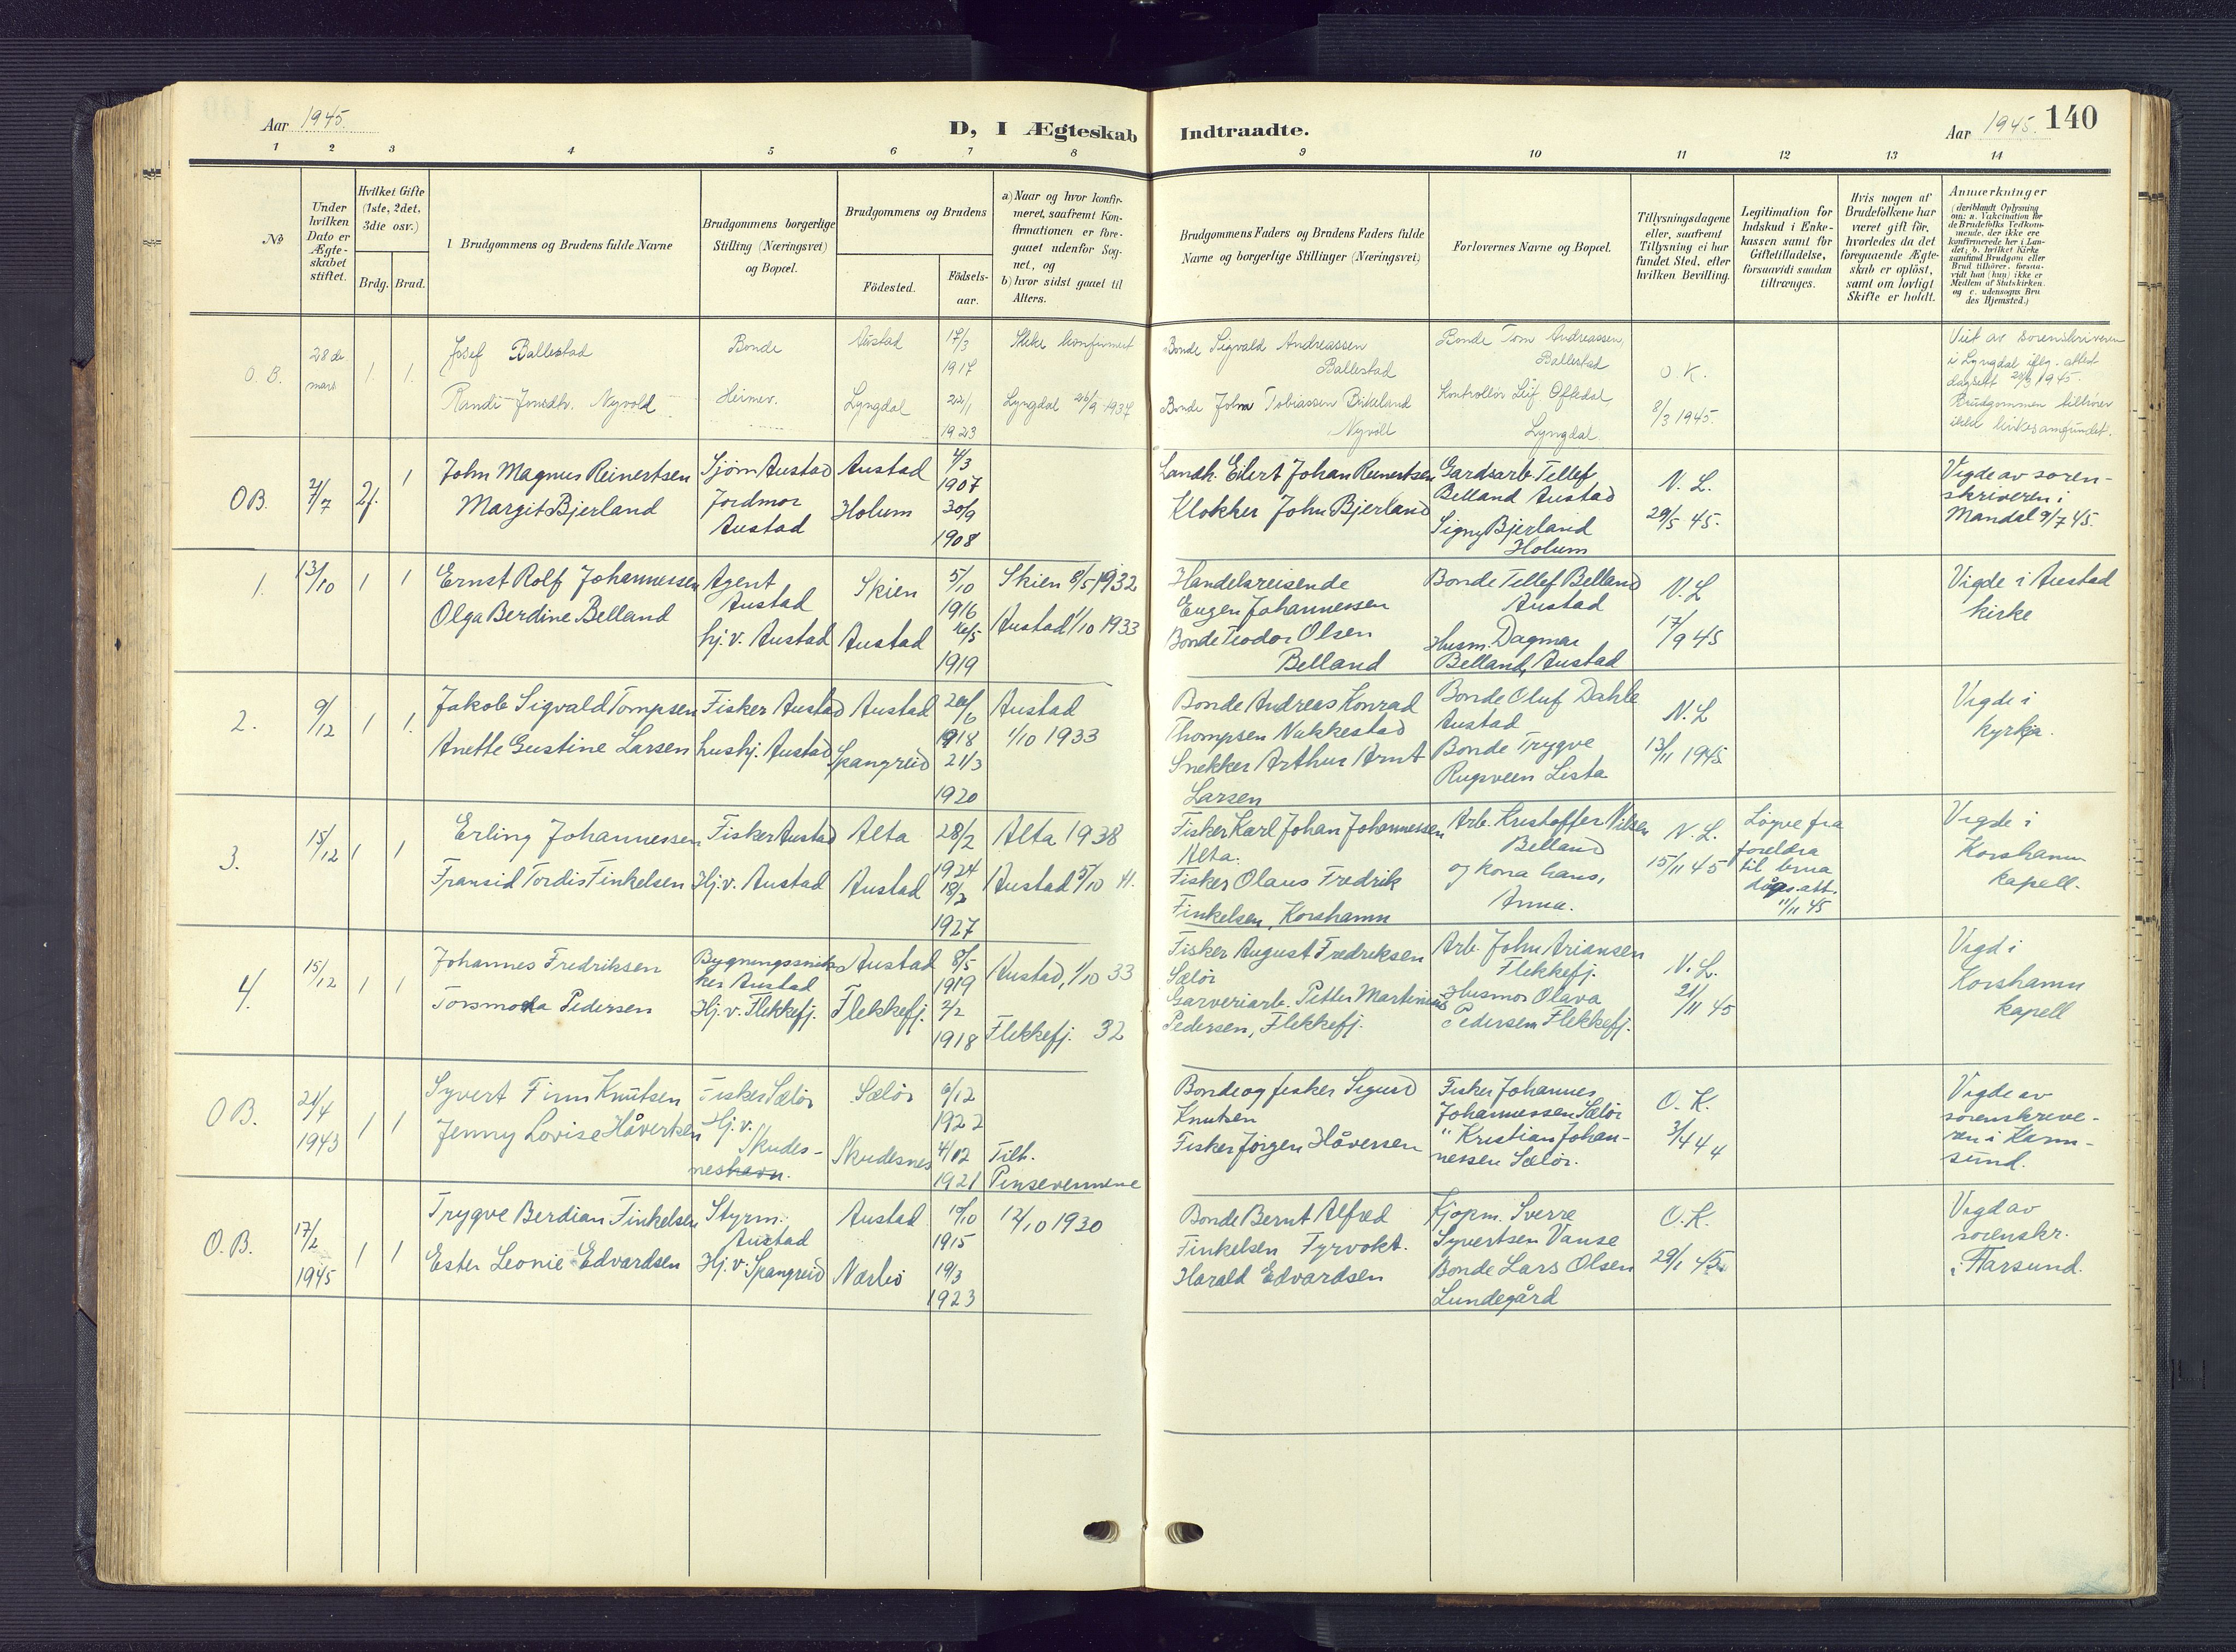 Aar 1945.
D, I Ægteskab Indtraadte.
Aar 1945. 140
1 2 3 4 5 6 7 8 9 10 11 12 13 14
No
Under hvilken Dato er Ægteskabet stiftet.
Hvilket Gifte (1ste, 2det, 3die osv.)
Brdg. Brud.
Brudgommens og Brudens fulde Navne
Brudgommens borgerlige Stilling (Næringsvei) og Bopæl.
Brudgommens og Brudens
Födested. Födsels-aar.
a) Naar og hvor konfirmeret, saafremt Konfirmationen er foregaaet udenfor Sognet, og
b) hvor sidst gaaet til Alters.
Brudgommens Faders og Brudens Faders fulde Navne og borgerlige Stillinger (Næringsvei)
Forlovernes Navne og Bopæl.
Tillysningsdagene eller, saafremt Tillysning ei har fundet Sted, efter hvilken Bevilling.
Legitimation for Indskud i Enkekassen samt for Giftetilladelse, forsaavidt saadan tiltrænges.
Hvis nogen af Brudefolkene har været gift för, hvorledes da det foregaaende Ægteskab er oplöst, samt om lovligt Skifte er holdt.
Anmærkninger
(deriblandt Oplysning om: a. Vakcination for de Brudefolks Vedkommende, der ikke ere konfirmerede her i Landet; b. hvilket Kirkesamfund Brudgom eller Brud tilhörer, forsaavidt han (hun) ikke er Medlem af Statskirken, og c. udensogns Brudes Hjemsted.)
O. B. 28de mars 1. 1.
Josef Ballestad Bonde Austad 17/3 1917 Ikke konfirmert
Randi Jonsdtr. Nyvold Heimev. Lyngdal 22/1 1923 Lyngdal 26/9 1937
Bonde Sigvald Andreassen Ballestad
Bonde John Tobiassen Birkeland Nyvoll
Bonde Tom Andreassen, Ballestad
Kontrollör Leif Oftedal, Lyngdal
O. K.
8/3 1945.
Viet av sorenskriveren
i Lyngdal iflg. attest
dagsett 28/3 1945.
Brudgommen tilhører
ikkje kirkesamfundet.
OB. 7/7 2. 1
John Magnus Reinertsen Sjöm Austad Austad 4/3 1907
Margit Bjerland Jordmor Austad Holum 30/9 1908
Landh. Eilert Johan Reinertsen
Klokker John Bjerland
Gardsarb. Tellef
Belland Austad
Signy Bjerland
Holum
N. L.
29/5 45.
Vigde av soren-
skriveren i
Mandal 9/7 45.
1. 13/10 1 1
Ernst Rolf Johannessen Agent Austad Skien 5/10 1916 Skien 8/5 1932
Olga Berdine Belland hj.v. Austad Austad 16/5 1919 Austad 1/10 1933
Handelsreisende
Eugen Johannessen
Bonde Teodor Olsen
Belland
Bonde Tellef Belland
Austad
Husm. Dagmar
Belland, Austad
N. L
17/9 45
Vigde i Austad
kirke
2. 9/12 1 1.
Jakob Sigvald Tompsen Fisker Austad Austad 26/6 1918 Austad 1/10 1933
Anette Gustine Larsen hushj. Austad Spangreid 21/3 1920
Bonde Andreas Konrad
Thompsen Vakkestad
Snekker Arthur Arnt
Larsen
Bonde Oluf Dahle
Austad
Bonde Trygve
Rugsveen Lista
N. L
13/11 1945
Vigde i
kyrkja.
3. 15/12 1 1
Erling Johannessen Fisker Austad Alta 28/2 1924 Alta 1938
Fransid Tordis Finkelsen Hj.v. Austad Austad 18/2 1927 Austad 5/10 41.
Fisker Karl Johan Johannessen,
Alta.
Fisker Olaus Fredrik
Finkelsen, Korshamn
Arb. Kristoffer Nilsen
Belland
og kona hans,
Anna.
N. L.
15/11 45
Löyve fra
foreldra
til brua
dags. att.
11/11 45
Vigde i
Korshamn
kapell.
4. 15/12 1 1
Johannes Fredriksen Bygningssnikker Austad Austad 8/5 1919 Austad, 1/10 33
Torsmoda Pedersen Hj.v. Flekkefj. Flekkefj. 2/2 1918 Flekkefj. 32
Fisker August Fredriksen
Sælör
Garveriarb. Petter Martinius
Pedersen, Flekkefj.
Arb. John Ariansen
Flekkefj.
Husmor Olava
Pedersen Flekkefj.
N. L.
21/11 45
Vigd i
Korshamn
kapell
O B. 21/4 1943 1 1
Syvert Finn Knutsen Fisker Sælör Sælör 6/12 1922
Jenny Lovise Håversen Hj.v. Skudesneshavn. Skudesnes 4/12 1921 Tilh. Pinsevennene
Bonde og fisker Sigurd
Knutsen
Fisker Jörgen Håversen
Fisker Johannes
Johannessen Sælör
" Kristian Johan-
nessen Sælör.
O. K.
3/4 44
Vigde av
sorenskrive-
ren i Karm-
sund.
O.B. 17/2 1945 1 1
Trygve Berdian Finkelsen Styrm. Austad Austad 19/10 1915 12/10 1930
Ester Leonie Edvardsen Hj.v. Spangreid Nærbö 19/3 1923
Bonde Bernt Alfred
Finkelsen Fyrvokt.
Harald Edvardsen
Kjöpm. Sverre
Syvertsen Vanse
Bonde Lars Olsen
Lundegård
O. K.
29/1 45
Vigd av
sorenskr.
i Farsund.